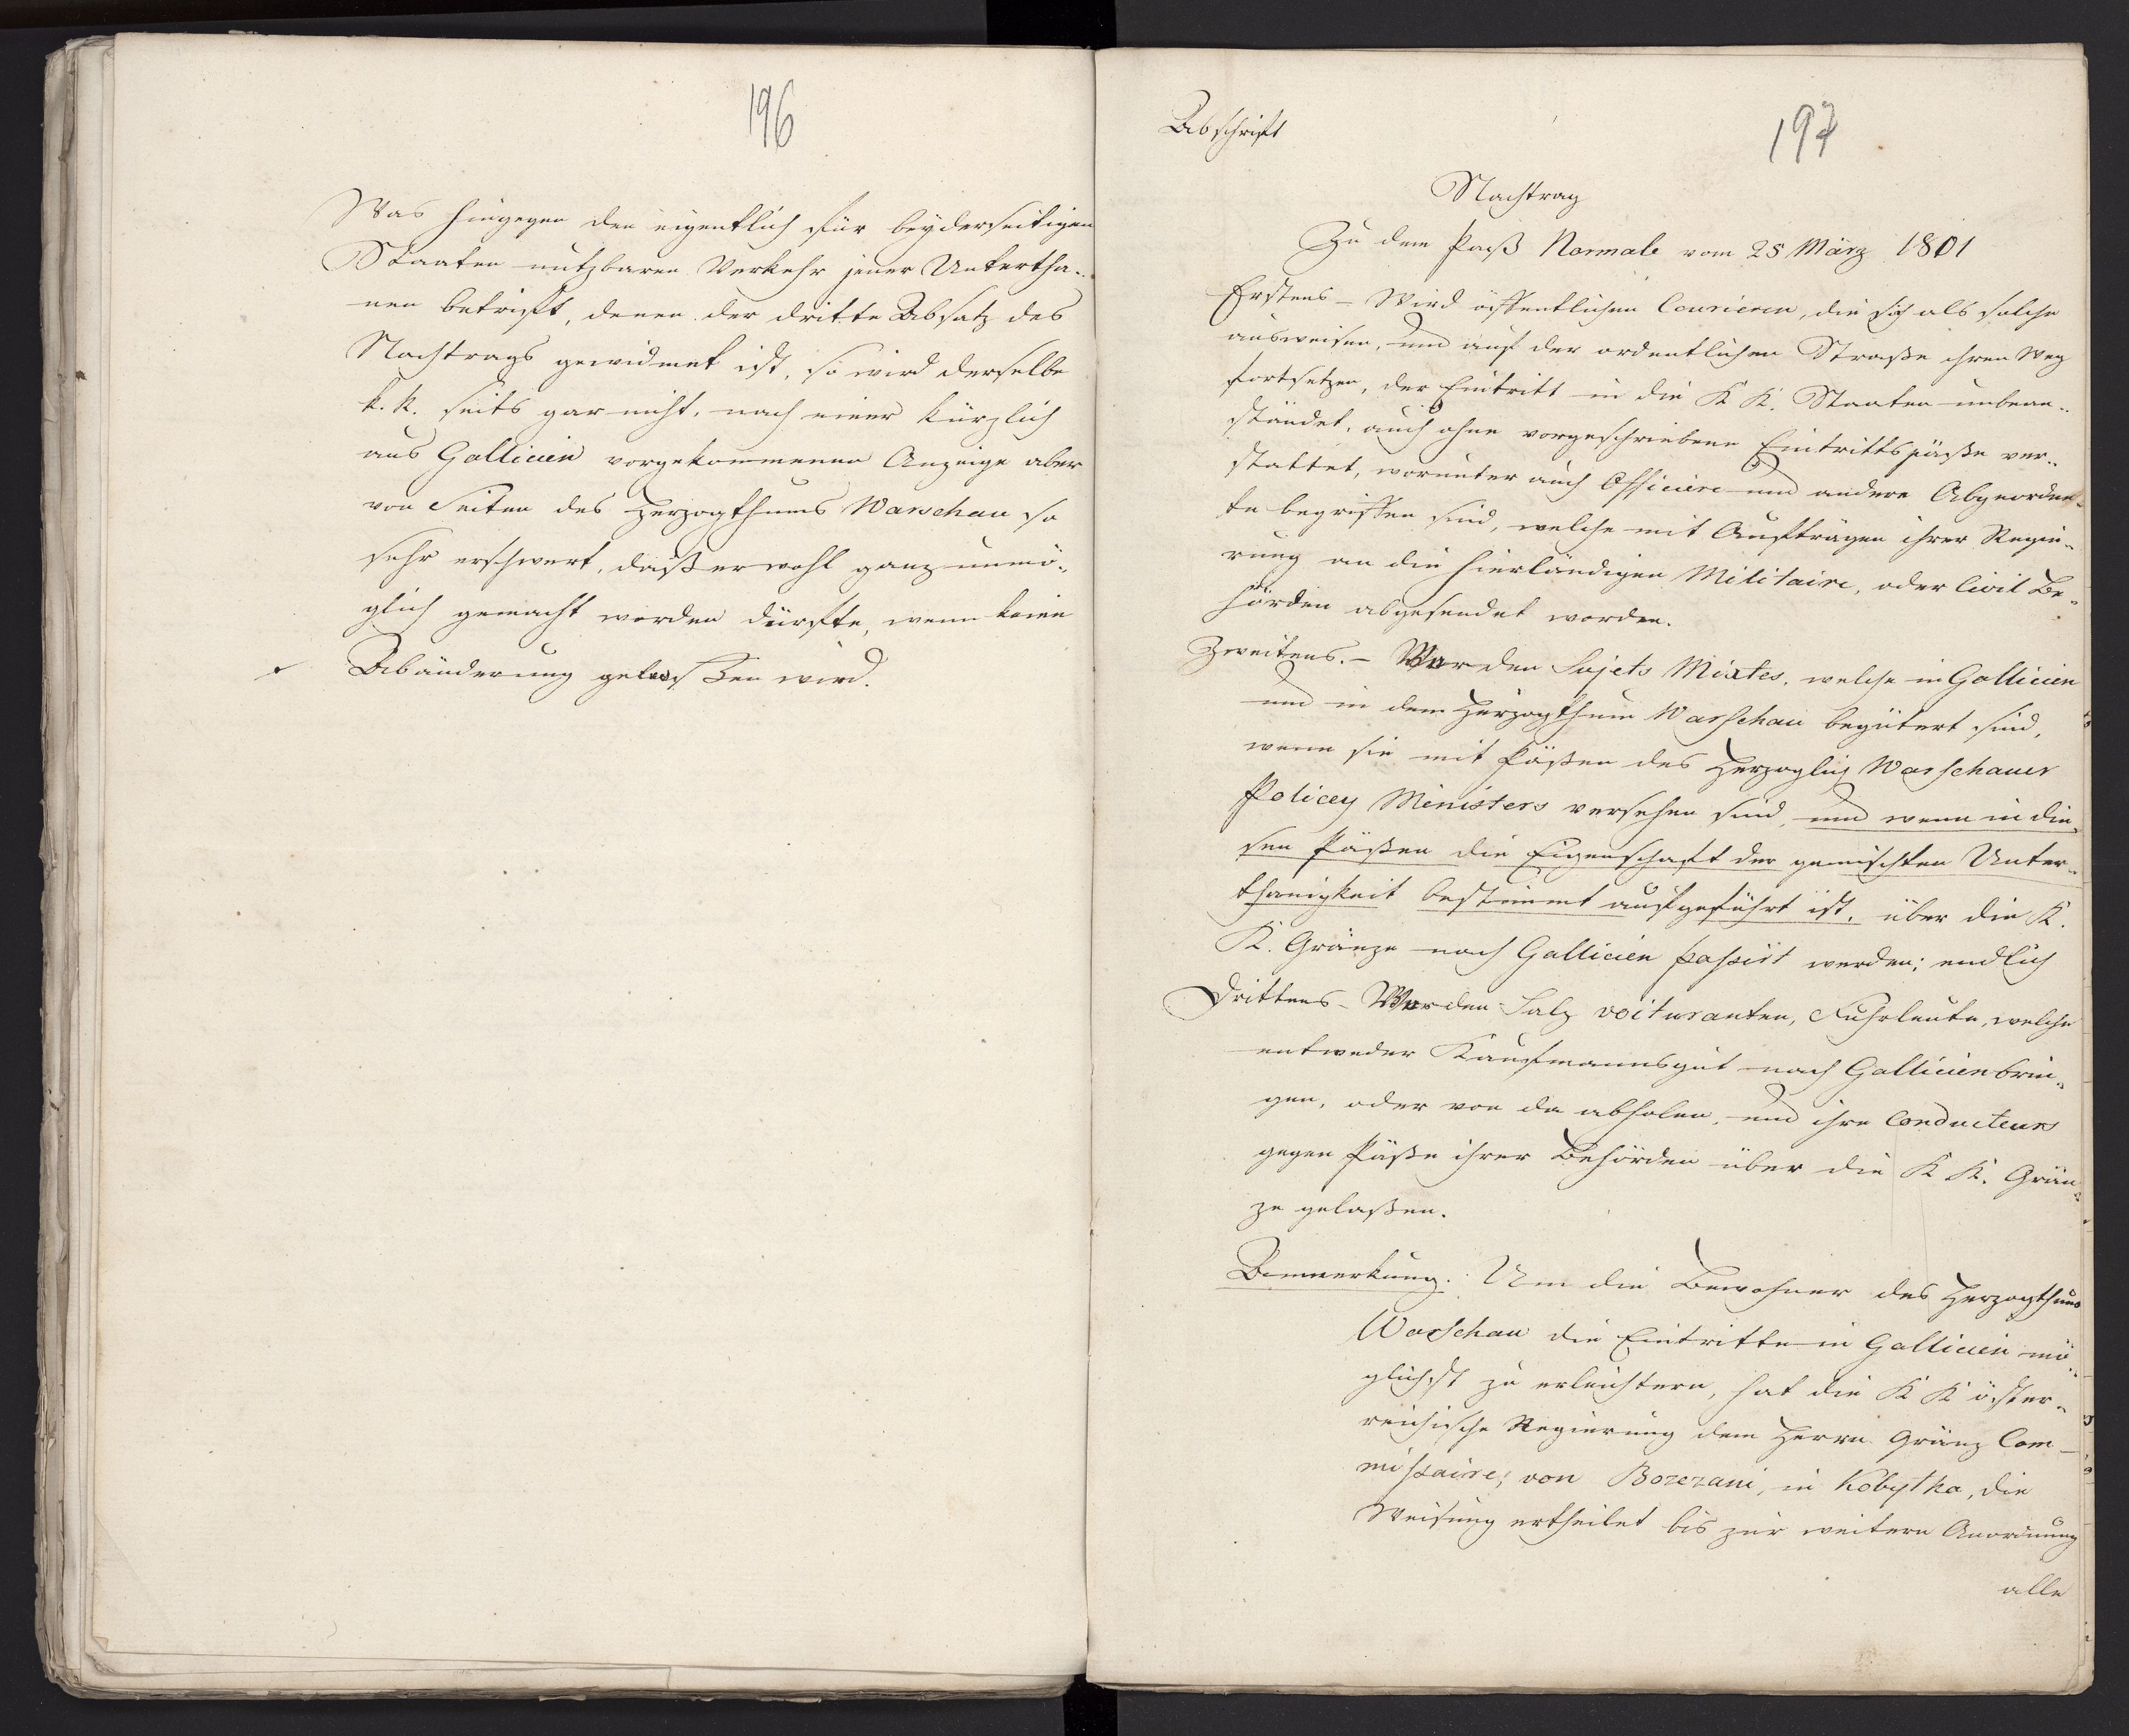 196
Was hingegen den eigentlich für beyderseitigen
Staaten nutzbaren Verkehr jener Untertha-
nen betrifft, denen der dritte Absatz des
Nachtrags gewidmet ist, so wird derselbe
k. k. seits gar nicht, nach einer kürzlich
aus Gallicien vorgekommenen Anzeige aber
von Seiten des Herzogthums Warschau so
sehr erschwert, daß er wohl ganz unmö-
glich gemacht werden dürfte, wenn keine
Abänderung getroffen wird.
Abschrift
197
Nachtrag
Zu dem Paß Normale vom 25 März 1801
Erstens – Wird öffentlichen Courieren, die sich als solche
ausweisen, und auf der ordentlichen Straße ihren Weg
fortsetzen, der Eintritt in die K K. Staaten unbean-
ständet, auch ohne vorgeschriebene Eintrittspäße ver-
stattet, worunter auch Officiere und andere Abgeordne-
te begriffen sind, welche mit Aufträgen ihrer Regie-
rung an die hierländigen Militaire, oder Civil Be-
hörden abgesendet werden.
Zweitens. – Werden Sujets Mixtes, welche in Gallicien
und in dem Herzogthum Warschau begütert sind,
wenn sie mit Päßen des Herzoglich Warschauer
Policey Ministers versehen sind, und wenn in die-
sen Päßen die Eigenschaft der gemischten Unter-
thanigkeit bestimmt aufgeführt ist, über die K.
K. Gränze nach Gallicien passirt werden; endlich
Drittens – Werden Salz voituranten, Fuhrleute, welche
entweder Kaufmannsgut nach Gallicien brin-
gen, oder von da abholen, und ihre Conducteurs
gegen Päße ihrer Behörden über die K K. Grän-
ze gelaßen.
Bemerkung. Um die Bewohner des Herzogthums
Warschau die Eintritte in Gallicien mö-
glichst zu erleichtern, hat die K K öster-
reichische Regierung dem Herrn Gränz Com-
missaire, von Bozezani, in Kobylka, die
Weisung ertheilet bis zur weitern Anordnung
alle